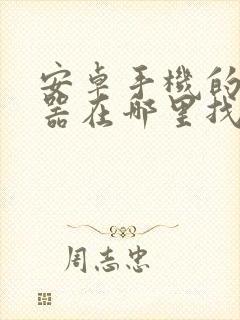 安卓手機的
器在哪里找
周志忠